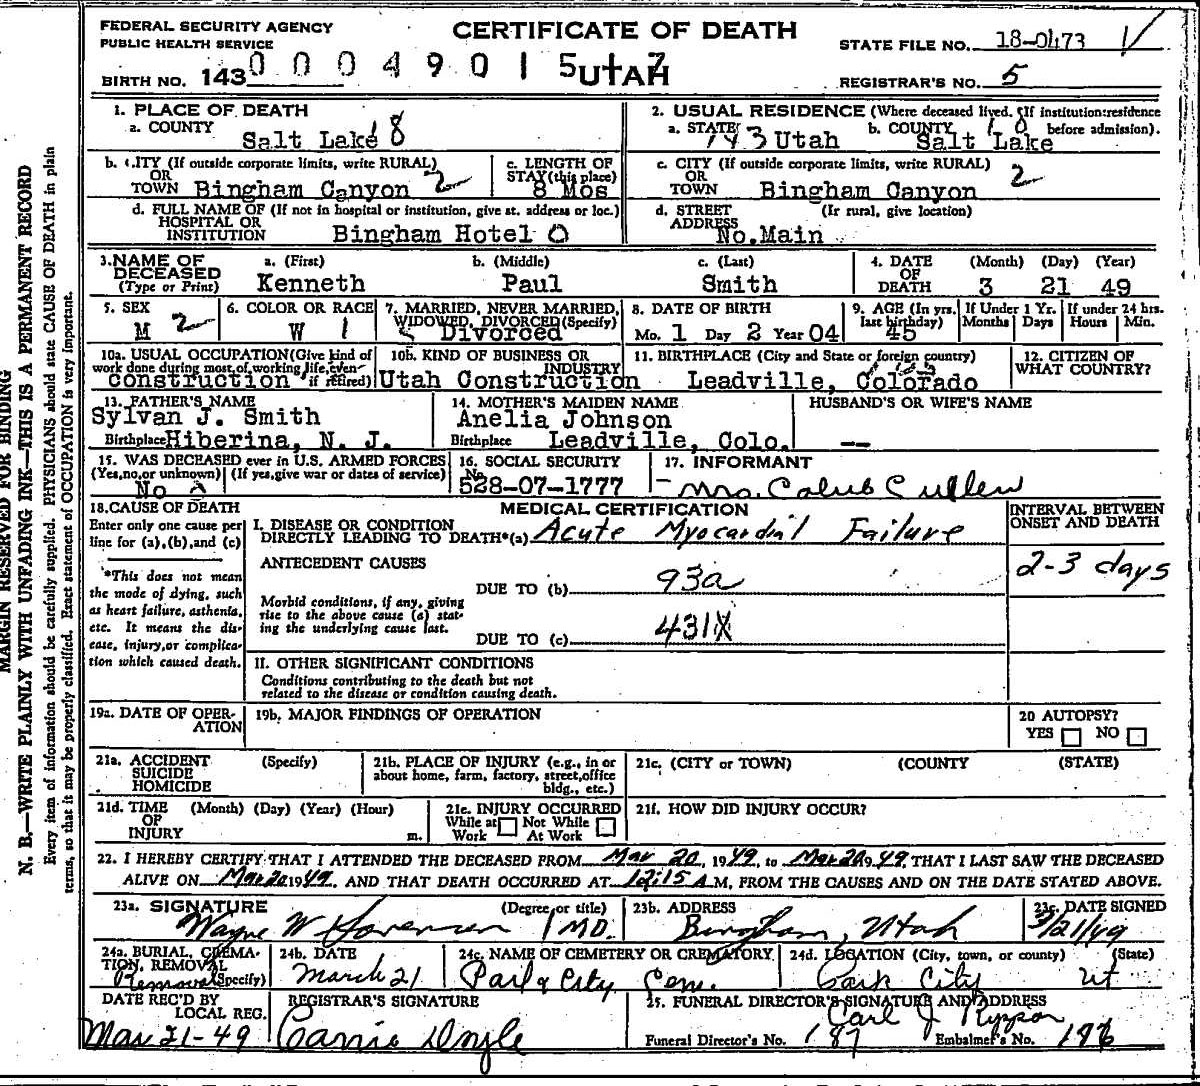 FEDERAL SECURITY AGENCY
PUBLIC HEALTH SERVICE
CERTIFICATE OF DEATH
STATE FILE NO. 18-0473
BIRTH NO. 143
UTAH
REGISTRAR'S NO. 5
1. PLACE OF DEATH
a. COUNTY
Salt Lake 18
2. USUAL RESIDENCE (Where deceased lived. If institution:residence before admission).
a. STATE 143 Utah b. COUNTY Salt Lake
b. CITY (If outside corporate limits, write RURAL)
OR
TOWN Bingham Canyon 2
c. LENGTH OF
STAY (this place)
8 Mos
c. CITY (If outside corporate limits, write RURAL)
OR
TOWN Bingham Canyon 2
d. FULL NAME OF (If not in hospital or institution, give st. address or loc.)
HOSPITAL OR
INSTITUTION Bingham Hotel O
d. STREET (Ir rural, give location)
ADDRESS
No.Main
3. NAME OF
DECEASED
(Type or Print)
a. (First) b. (Middle) c. (Last)
Kenneth Paul Smith
4. DATE
OF
DEATH
(Month) (Day) (Year)
3 21 49
5. SEX
M 2
6. COLOR OR RACE
W 1
7. MARRIED, NEVER MARRIED,
WIDOWED, DIVORCED (Specify)
Divorced
8. DATE OF BIRTH
Mo. 1 Day 2 Year 04
9. AGE (In yrs.
last birthday)
45
If Under 1 Yr.
Months Days
If under 24 hrs.
Hours Min.
10a. USUAL OCCUPATION (Give kind of
work done during most of working life, even
if retired)
construction
10b. KIND OF BUSINESS OR
INDUSTRY
Utah Construction
11. BIRTHPLACE (City and State or foreign country)
Leadville, Colorado
12. CITIZEN OF
WHAT COUNTRY?
13. FATHER'S NAME
Sylvan J. Smith
Birthplace Hiberina, N. J.
14. MOTHER'S MAIDEN NAME
Anelia Johnson
Birthplace Leadville, Colo.
HUSBAND'S OR WIFE'S NAME
--
15. WAS DECEASED ever in U.S. ARMED FORCES
(Yes, no, or unknown) (If yes, give war or dates of service)
No
16. SOCIAL SECURITY
No.
528-07-1777
17. INFORMANT
Mrs. Cullen
18. CAUSE OF DEATH
Enter only one cause per
line for (a), (b), and (c)
*This does not mean
the mode of dying, such
as heart failure, asthenia,
etc. It means the dis-
ease, injury, or complica-
tion which caused death.
MEDICAL CERTIFICATION
I. DISEASE OR CONDITION
DIRECTLY LEADING TO DEATH*(a) Acute Myocardial Failure
ANTECEDENT CAUSES
DUE TO (b) 93a
Morbid conditions, if any, giving
rise to the above cause (a) stat-
ing the underlying cause last.
DUE TO (c) 431X
II. OTHER SIGNIFICANT CONDITIONS
Conditions contributing to the death but not
related to the disease or condition causing death.
INTERVAL BETWEEN
ONSET AND DEATH
2-3 days
19a. DATE OF OPER-
ATION
19b. MAJOR FINDINGS OF OPERATION
20 AUTOPSY?
YES NO
21a. ACCIDENT (Specify)
SUICIDE
HOMICIDE
21b. PLACE OF INJURY (e.g., in or
about home, farm, factory, street, office
bldg., etc.)
21c. (CITY or TOWN) (COUNTY (STATE)
21d. TIME (Month) (Day) (Year) (Hour)
OF
INJURY m.
21e. INJURY OCCURRED
While at Not While
Work At Work
21f. HOW DID INJURY OCCUR?
22. I HEREBY CERTIFY THAT I ATTENDED THE DECEASED FROM Mar 20, 1949, to Mar 20 1949 THAT I LAST SAW THE DECEASED
ALIVE ON Mar 20 1949, AND THAT DEATH OCCURRED AT 12:15 A M, FROM THE CAUSES AND ON THE DATE STATED ABOVE.
23a. SIGNATURE (Degree or title)
Wayne W MD.
23b. ADDRESS
Bingham, Utah
23c. DATE SIGNED
3/21/49
24a. BURIAL, CREMA-
TION, REMOVAL
(Specify)
Removal
24b. DATE
March 21
24c. NAME OF CEMETERY OR CREMATORY
Park City Cem.
24d. LOCATION (City, town, or county) (State)
Park City Ut
DATE REC'D BY
LOCAL REG.
Mar 21-49
REGISTRAR'S SIGNATURE
Carrie
25. FUNERAL DIRECTOR'S SIGNATURE AND ADDRESS
Carl J
Funeral Director's No. 187 Embalmer's No. 196
MARGIN RESERVED FOR BINDING
N. B.—WRITE PLAINLY WITH UNFADING INK—THIS IS A PERMANENT RECORD
Every item of information should be carefully supplied. PHYSICIANS should state CAUSE OF DEATH in plain
terms, so that it may be properly classified. Exact statement of OCCUPATION is very important.